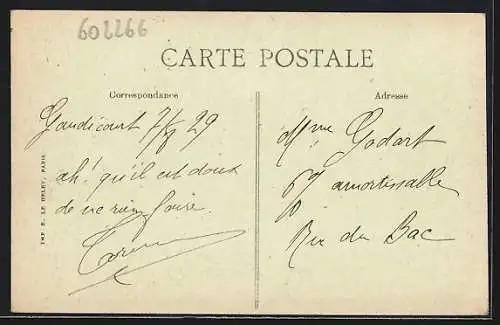 602266
CARTE POSTALE
Correspondance
Adresse
Gaudicourt 7/8 29
ah! qu'il est doux
de ne rien faire
Mme Godart
67 amortissable
Rue du Bac
IMP. E. LE DELEY, PARIS